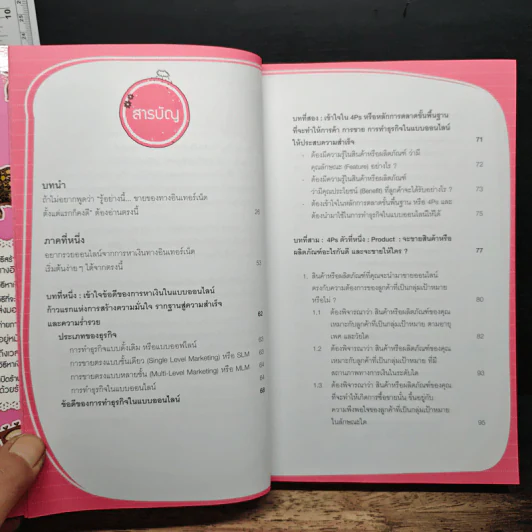 สารบัญ
บทนำ
ถ้าไม่อยากพูดว่า "รู้อย่างนี้... ขายของทางอินเทอร์เน็ต
ตั้งแต่แรกก็ดี" ต้องอ่านตรงนี้
ภาคที่หนึ่ง
อยากรวยออนไลน์จากการหาเงินทางอินเทอร์เน็ต
เริ่มต้นง่าย ๆ ได้จากตรงนี้
บทที่หนึ่ง : เข้าใจข้อดีของการหาเงินในแบบออนไลน์
ก้าวแรกแห่งการสร้างความมั่นใจ รากฐานสู่ความสำเร็จ
และความร่ำรวย 62
ประเภทของธุรกิจ
การทำธุรกิจแบบดั้งเดิม หรือแบบออฟไลน์
การขายตรงแบบชั้นเดียว (Single Level Marketing) หรือ SLM
การขายตรงแบบหลายชั้น (Multi-Level Marketing) หรือ MLM
การทำธุรกิจในแบบออนไลน์
ข้อดีของการทำธุรกิจในแบบออนไลน์
บทที่สอง : เข้าใจใน 4Ps หรือหลักการตลาดขั้นพื้นฐาน
ที่จะทำให้การค้า การขาย การทำธุรกิจในแบบออนไลน์
ให้ประสบความสำเร็จ 71
- ต้องมีความรู้ในสินค้าหรือผลิตภัณฑ์ ว่ามี
คุณลักษณะ (Feature) อย่างไร ? 72
- ต้องมีความรู้ในสินค้าหรือผลิตภัณฑ์
ว่ามีคุณประโยชน์ (Benefit) ที่ลูกค้าจะได้รับอย่างไร ? 73
- ต้องเข้าใจในหลักการตลาดขั้นพื้นฐาน หรือ 4Ps และ
ต้องนำมาใช้ในการทำธุรกิจในแบบออนไลน์ให้ได้ 75
บทที่สาม : 4Ps ตัวที่หนึ่ง : Product : จะขายสินค้าหรือ
ผลิตภัณฑ์อะไรกันดี และจะขายให้ใคร ? 77
1. สินค้าหรือผลิตภัณฑ์ที่คุณจะนำมาขายออนไลน์
ตรงกับความต้องการของลูกค้าที่เป็นกลุ่มเป้าหมาย
หรือไม่ ? 80
1.1 ต้องพิจารณาว่า สินค้าหรือผลิตภัณฑ์ของคุณ
เหมาะกับลูกค้าที่เป็นกลุ่มเป้าหมาย ตามอายุ
เพศ และวัยใด 82
1.2 ต้องพิจารณาว่า สินค้าหรือผลิตภัณฑ์ของคุณ
เหมาะกับลูกค้าที่เป็นกลุ่มเป้าหมาย ที่มี
สถานภาพทางการเงินในระดับใด 93
1.3 ต้องพิจารณาว่า สินค้าหรือผลิตภัณฑ์ของคุณ
ที่จะทำให้เกิดการซื้อขายนั้น ขึ้นอยู่กับ
ความพึงพอใจของลูกค้าที่เป็นกลุ่มเป้าหมาย
ในลักษณะใด 95